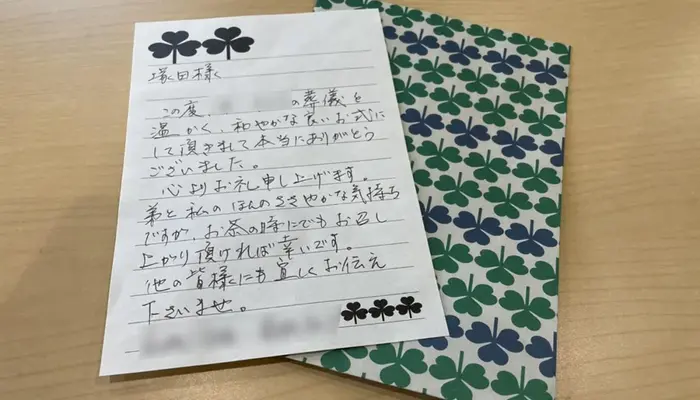 塚田様
この度、の葬儀を
温かく、和やかな良いお式に
して頂きまして本当にありがとう
ございました。
心よりお礼申し上げます。
弟と私のほんのささやかな気持ち
ですが、お茶の時にでもお召し
上がり頂ければ幸いです。
他の皆様にも宜しくお伝え
下さいませ。